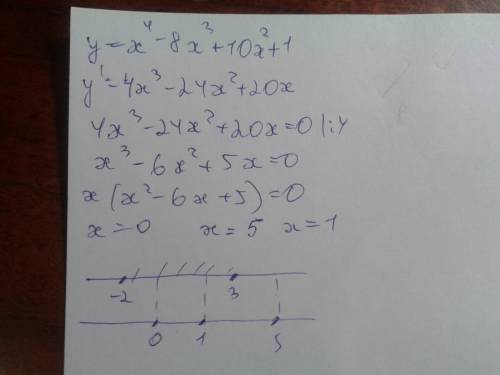 y = x⁴ - 8x³ + 10x² + 1
y' = 4x³ - 24x² + 20x
4x³ - 24x² + 20x = 0 |:4
x³ - 6x² + 5x = 0
x(x² - 6x + 5) = 0
x = 0 x = 5 x = 1
-2 3
0 1 5